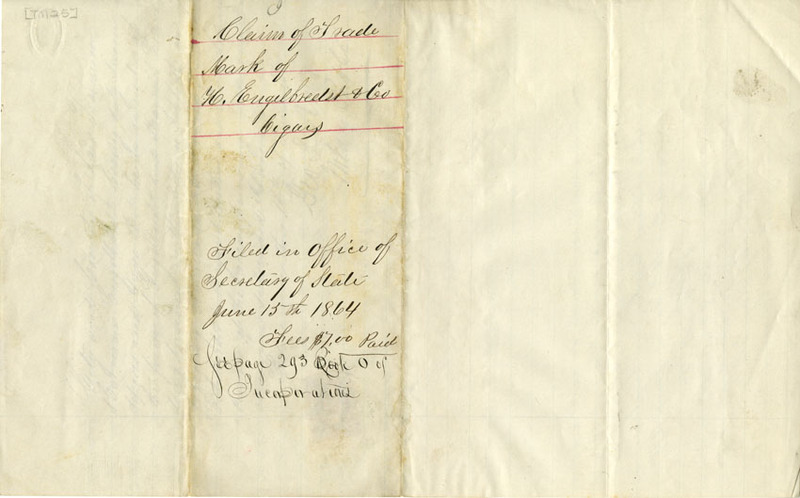 [TM25]
Claim of Trade
Mark of
H. Engelbredt & Co
Cigars
Filed in Office of
Secretary of State
June 15th 1864
Fees $7.00 Paid
See page 293 Book O of
Incorporations